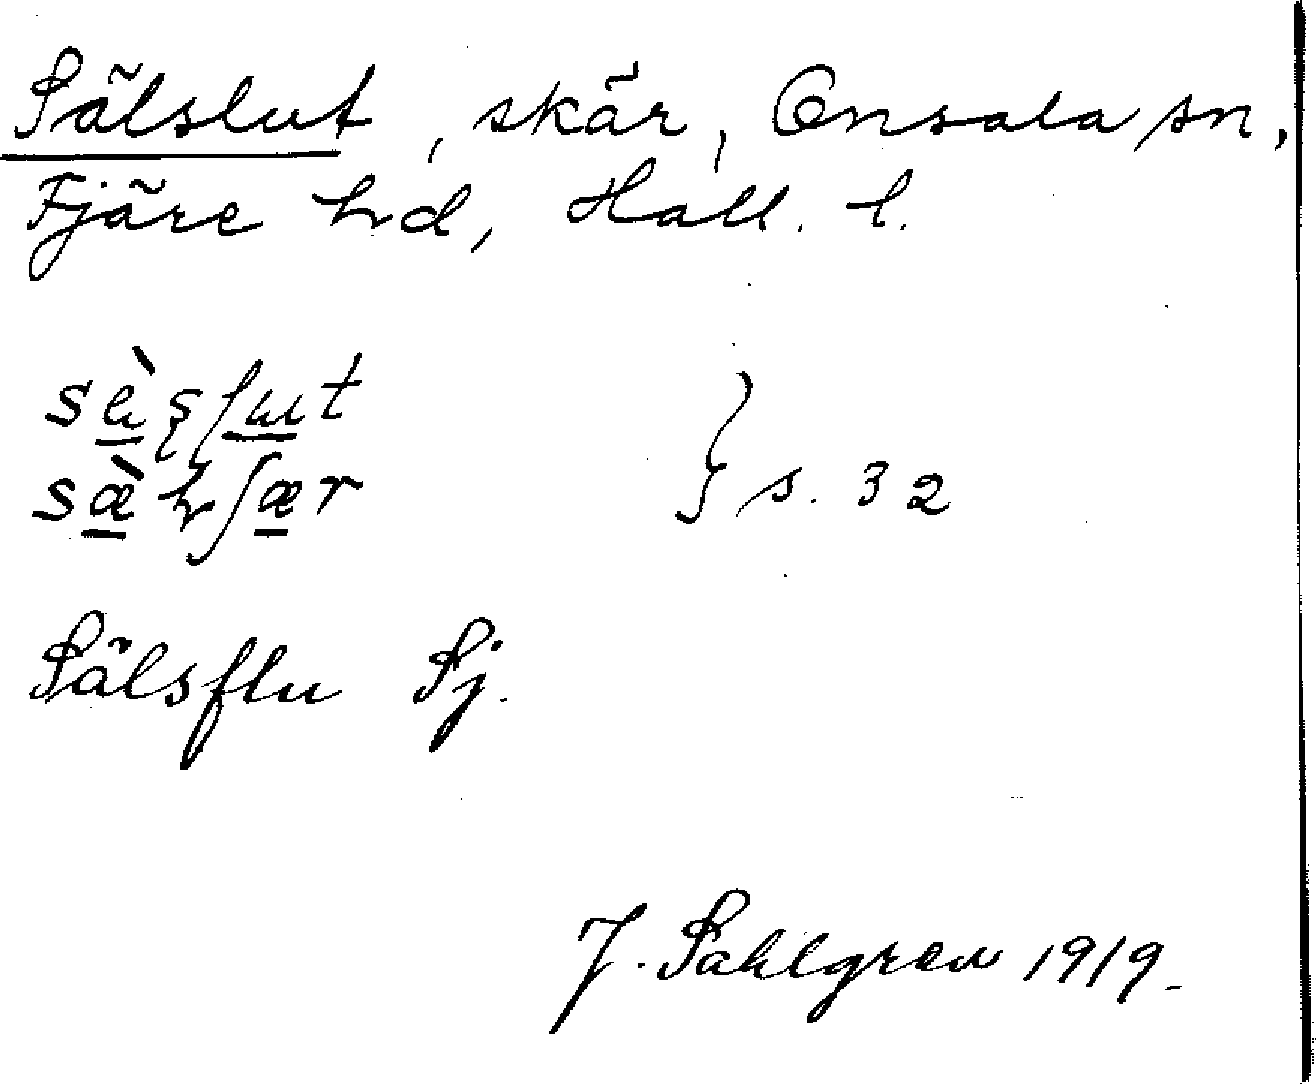 Sälslut, skär, Onsala sn,
Fjäre hd, Hall. l.
} s. 32
Sälsflu Sj.
J. Sahlgren 1919.